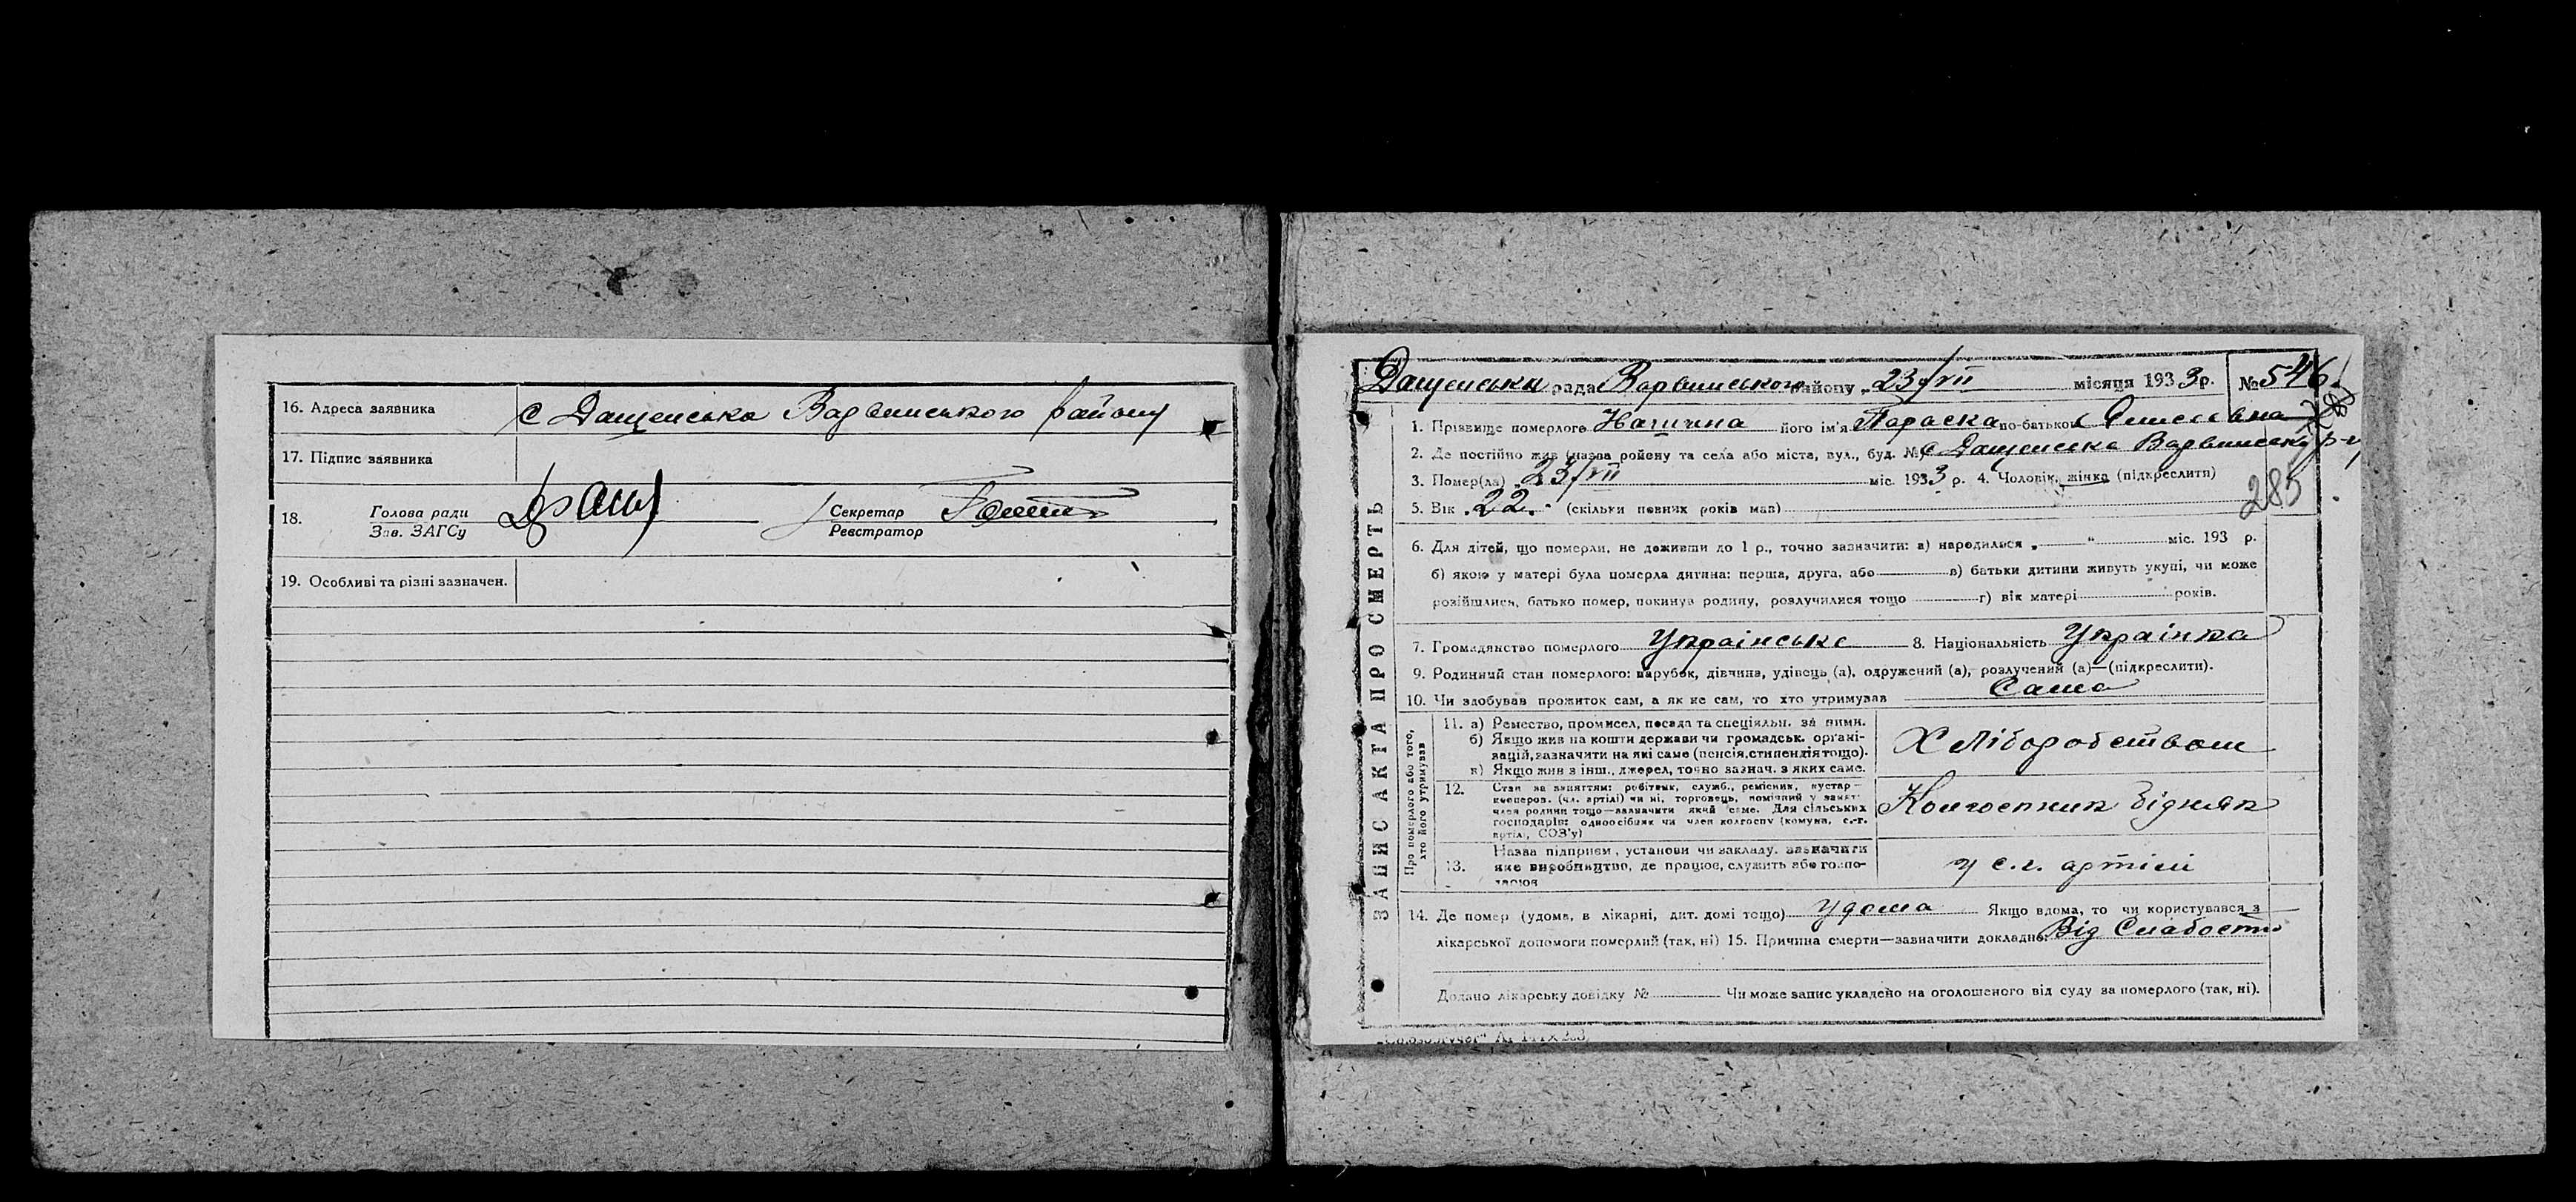 16. Адреса заявника С Дащенська Варвинського району
17. Підпис заявника
18. Голова ради
Зав. ЗАГСу
Секретар
Реєстратор
19. Особливі та різні зазначен.
ЗАПИС АКТА ПРО СМЕРТЬ
Дащенська рада Варвинського району „23/VII місяця 1933 р. № 546
1. Прізвище померлого його ім'я Параска по-батькові
2. Де постійно жив (назва ройену та села або міста, вул., буд. № С Дащенська Варвинськ р-н
3. Помер(ла) „23/VII міс. 1933 р. 4. Чоловік, жінка (підкреслити)
285
5. Вік 22 (скільки повних років мав)
6. Для дітей, що померли, не доживши до 1 р., точно зазначити: а) народилася „ “ міс. 193 р.
б) якою у матері була померла дитина: перша, друга, або в) батьки дитини живуть укупі, чи може
розійшлися, батько помер, покинув родину, розлучилися тощо г) вік матері років.
7. Громадянство померлого Українське 8. Національність Українка
9. Родинний стан померлого: парубок, дівчина, удівець (а), одружений (а), розлучений (а)—(підкреслити).
10. Чи здобував прожиток сам, а як не сам, то хто утримував Сама
Про померлого або того, хто його утримував
11. а) Ремество, промисел, посада та спеціяльн. за ними.
б) Якщо жив на кошти держави чи громадськ. органі-
зацій, зазначити на які саме (пенсія, стипендія тощо).
в) Якщо жив з інш., джерел, точно зазнач. з яких саме.
Хліборобством
12. Стан за заняттям: робітник, служб., ремісник, кустар—
кооперов. (чл. артілі) чи ні, торговець, помічний у занят.
член родини тощо—зазначити який саме. Для сільських
господарів: одноосібник чи член колгоспу (комуна, с.-г.
артілі, СОЗ'у)
Колгоспник бідняк
13. Назва підприєм, установи чи закладу. зазначити
яке виробництво, де працює, служить або госпо-
дарює
у с.г. артілі
14. Де помер (удома, в лікарні, дит. домі тощо) удома Якщо вдома, то чи користувався з
лікарської допомоги померлий (так, ні) 15. Причина смерти—зазначити докладно: Від Слабости
Додано лікарську довідку № Чи може запис укладено на оголошеного від суду за померлого (так, ні).